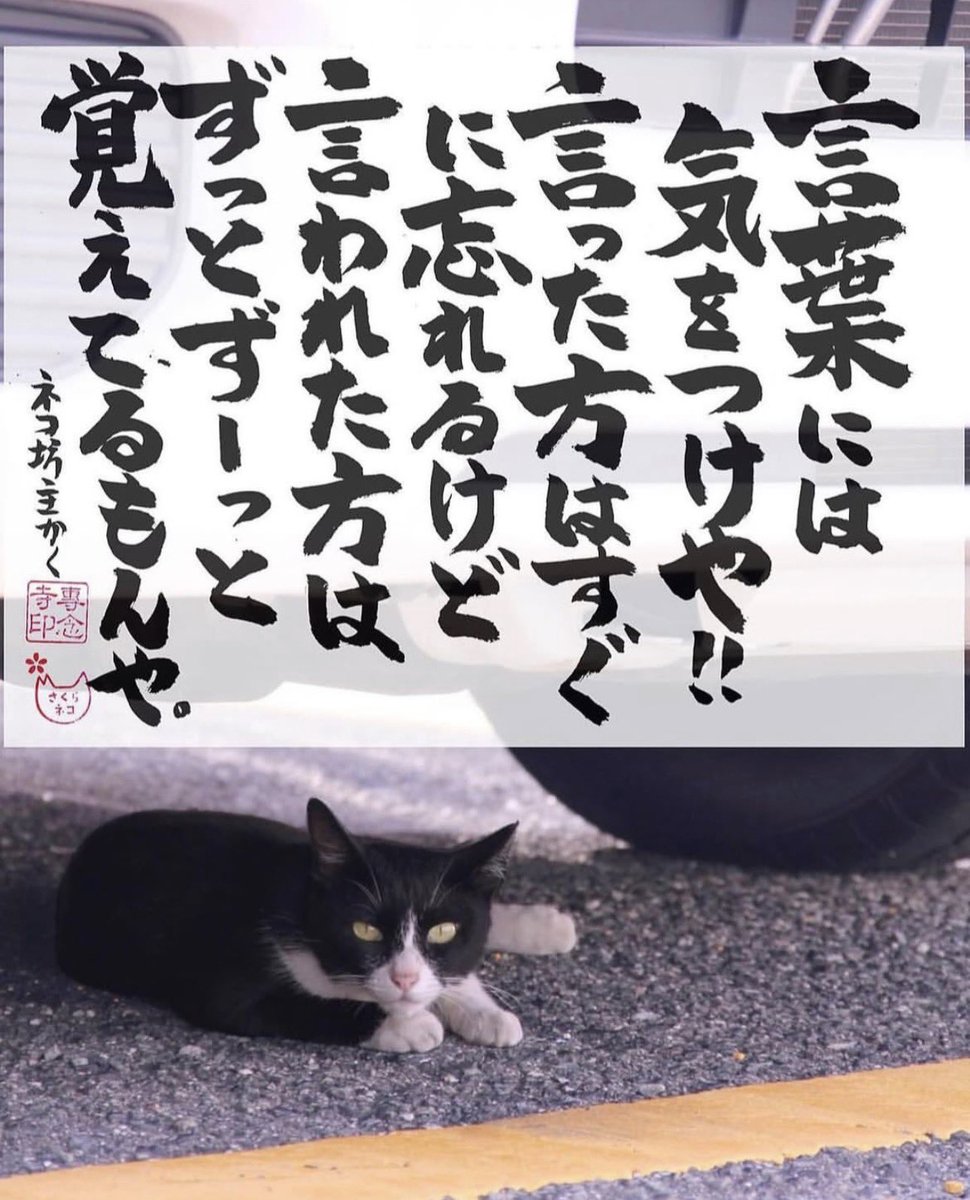 言葉には
気をつけや!!
言った方はすぐ
に忘れるけど
言われた方は
ずっとずーっと
覚えてるもんや。
ネコ坊主かく
専念
寺印
さくら
ネコ